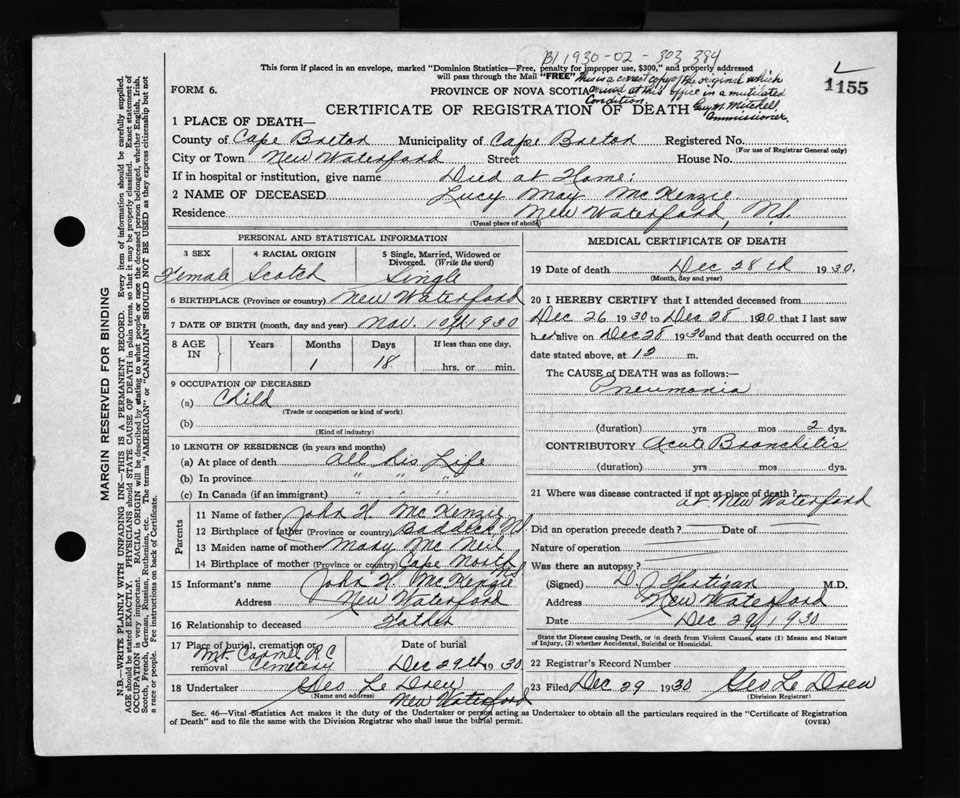 B1 1930-02-303 384
This form if placed in an envelope, marked "Dominion Statistics—Free, penalty for improper use, $300," and properly addressed
will pass through the Mail "FREE" This is a correct copy of the original which
L
1155
FORM 6.
PROVINCE OF NOVA SCOTIA arrived at this office in a mutilated
condition. Guy N. Mitchell,
Commissioner.
CERTIFICATE OF REGISTRATION OF DEATH
1 PLACE OF DEATH—
County of Cape Breton Municipality of Cape Breton Registered No.
(For use of Registrar General only)
City or Town New Waterford Street House No.
If in hospital or institution, give name Died at Home:
2 NAME OF DECEASED Lucy May McKenzie
Residence New Waterford, N.S.
(Usual place of abode)
PERSONAL AND STATISTICAL INFORMATION
3 SEX 4 RACIAL ORIGIN 5 Single, Married, Widowed or
Divorced. (Write the word)
Female Scotch Single
6 BIRTHPLACE (Province or country) New Waterford
7 DATE OF BIRTH (month, day and year) Nov. 10th 1930
8 AGE IN Years Months Days If less than one day.
1 18 hrs. or min.
9 OCCUPATION OF DECEASED
(a) Child
(Trade or occupation or kind of work)
(b)
(Kind of industry)
10 LENGTH OF RESIDENCE (in years and months)
(a) At place of death all his Life
(b) In province " " "
(c) In Canada (if an immigrant) " " "
Parents
11 Name of father John H. McKenzie
12 Birthplace of father (Province or country) Baddeck, N.S.
13 Maiden name of mother Mary McNeil
14 Birthplace of mother (Province or country) Cape North N.S.
15 Informant's name John H. McKenzie
Address New Waterford
16 Relationship to deceased Father
17 Place of burial, cremation or removal Date of burial
Mt. Carmel R C
Cemetery Dec 29th 1930
18 Undertaker Geo Le Drew
(Name and address) New Waterford
MEDICAL CERTIFICATE OF DEATH
19 Date of death Dec 28th 1930.
(Month, day and year)
20 I HEREBY CERTIFY that I attended deceased from
Dec 26 1930 to Dec 28 1930 that I last saw
her alive on Dec 28 1930 and that death occurred on the
date stated above, at 12 m.
The CAUSE of DEATH was as follows:—
Pneumonia
(duration) yrs mos 2 dys.
CONTRIBUTORY Acute Bronchitis
(duration) yrs mos dys.
21 Where was disease contracted if not at place of death?
at New Waterford
Did an operation precede death? — Date of —
Nature of operation —
Was there an autopsy? —
(Signed) D. J. Hartigan M.D.
Address New Waterford
Date Dec 29/1930
State the Disease causing Death, or in death from Violent Causes, state (1) Means and Nature
of Injury, (2) whether Accidental, Suicidal or Homicidal.
22 Registrar's Record Number
23 Filed Dec 29 1930 Geo Le Drew
(Division Registrar)
Sec. 46—Vital Statistics Act makes it the duty of the Undertaker or person acting as Undertaker to obtain all the particulars required in the "Certificate of Registration
of Death" and to file the same with the Division Registrar who shall issue the burial permit.
(OVER)
MARGIN RESERVED FOR BINDING
N.B.—WRITE PLAINLY WITH UNFADING INK—THIS IS A PERMANENT RECORD. Every item of information should be carefully supplied.
AGE should be stated EXACTLY. PHYSICIANS should STATE CAUSE OF DEATH in plain terms, so that it may be properly classified. Exact statement of
OCCUPATION is very important. RACIAL ORIGIN will be described by stating to what people or race the deceased person belonged, whether English, Irish,
Scotch, French, German, Russian, Ruthenian, etc. The terms "AMERICAN" or "CANADIAN" SHOULD NOT BE USED as they express citizenship but not
a race or people. See instructions on back of Certificate.